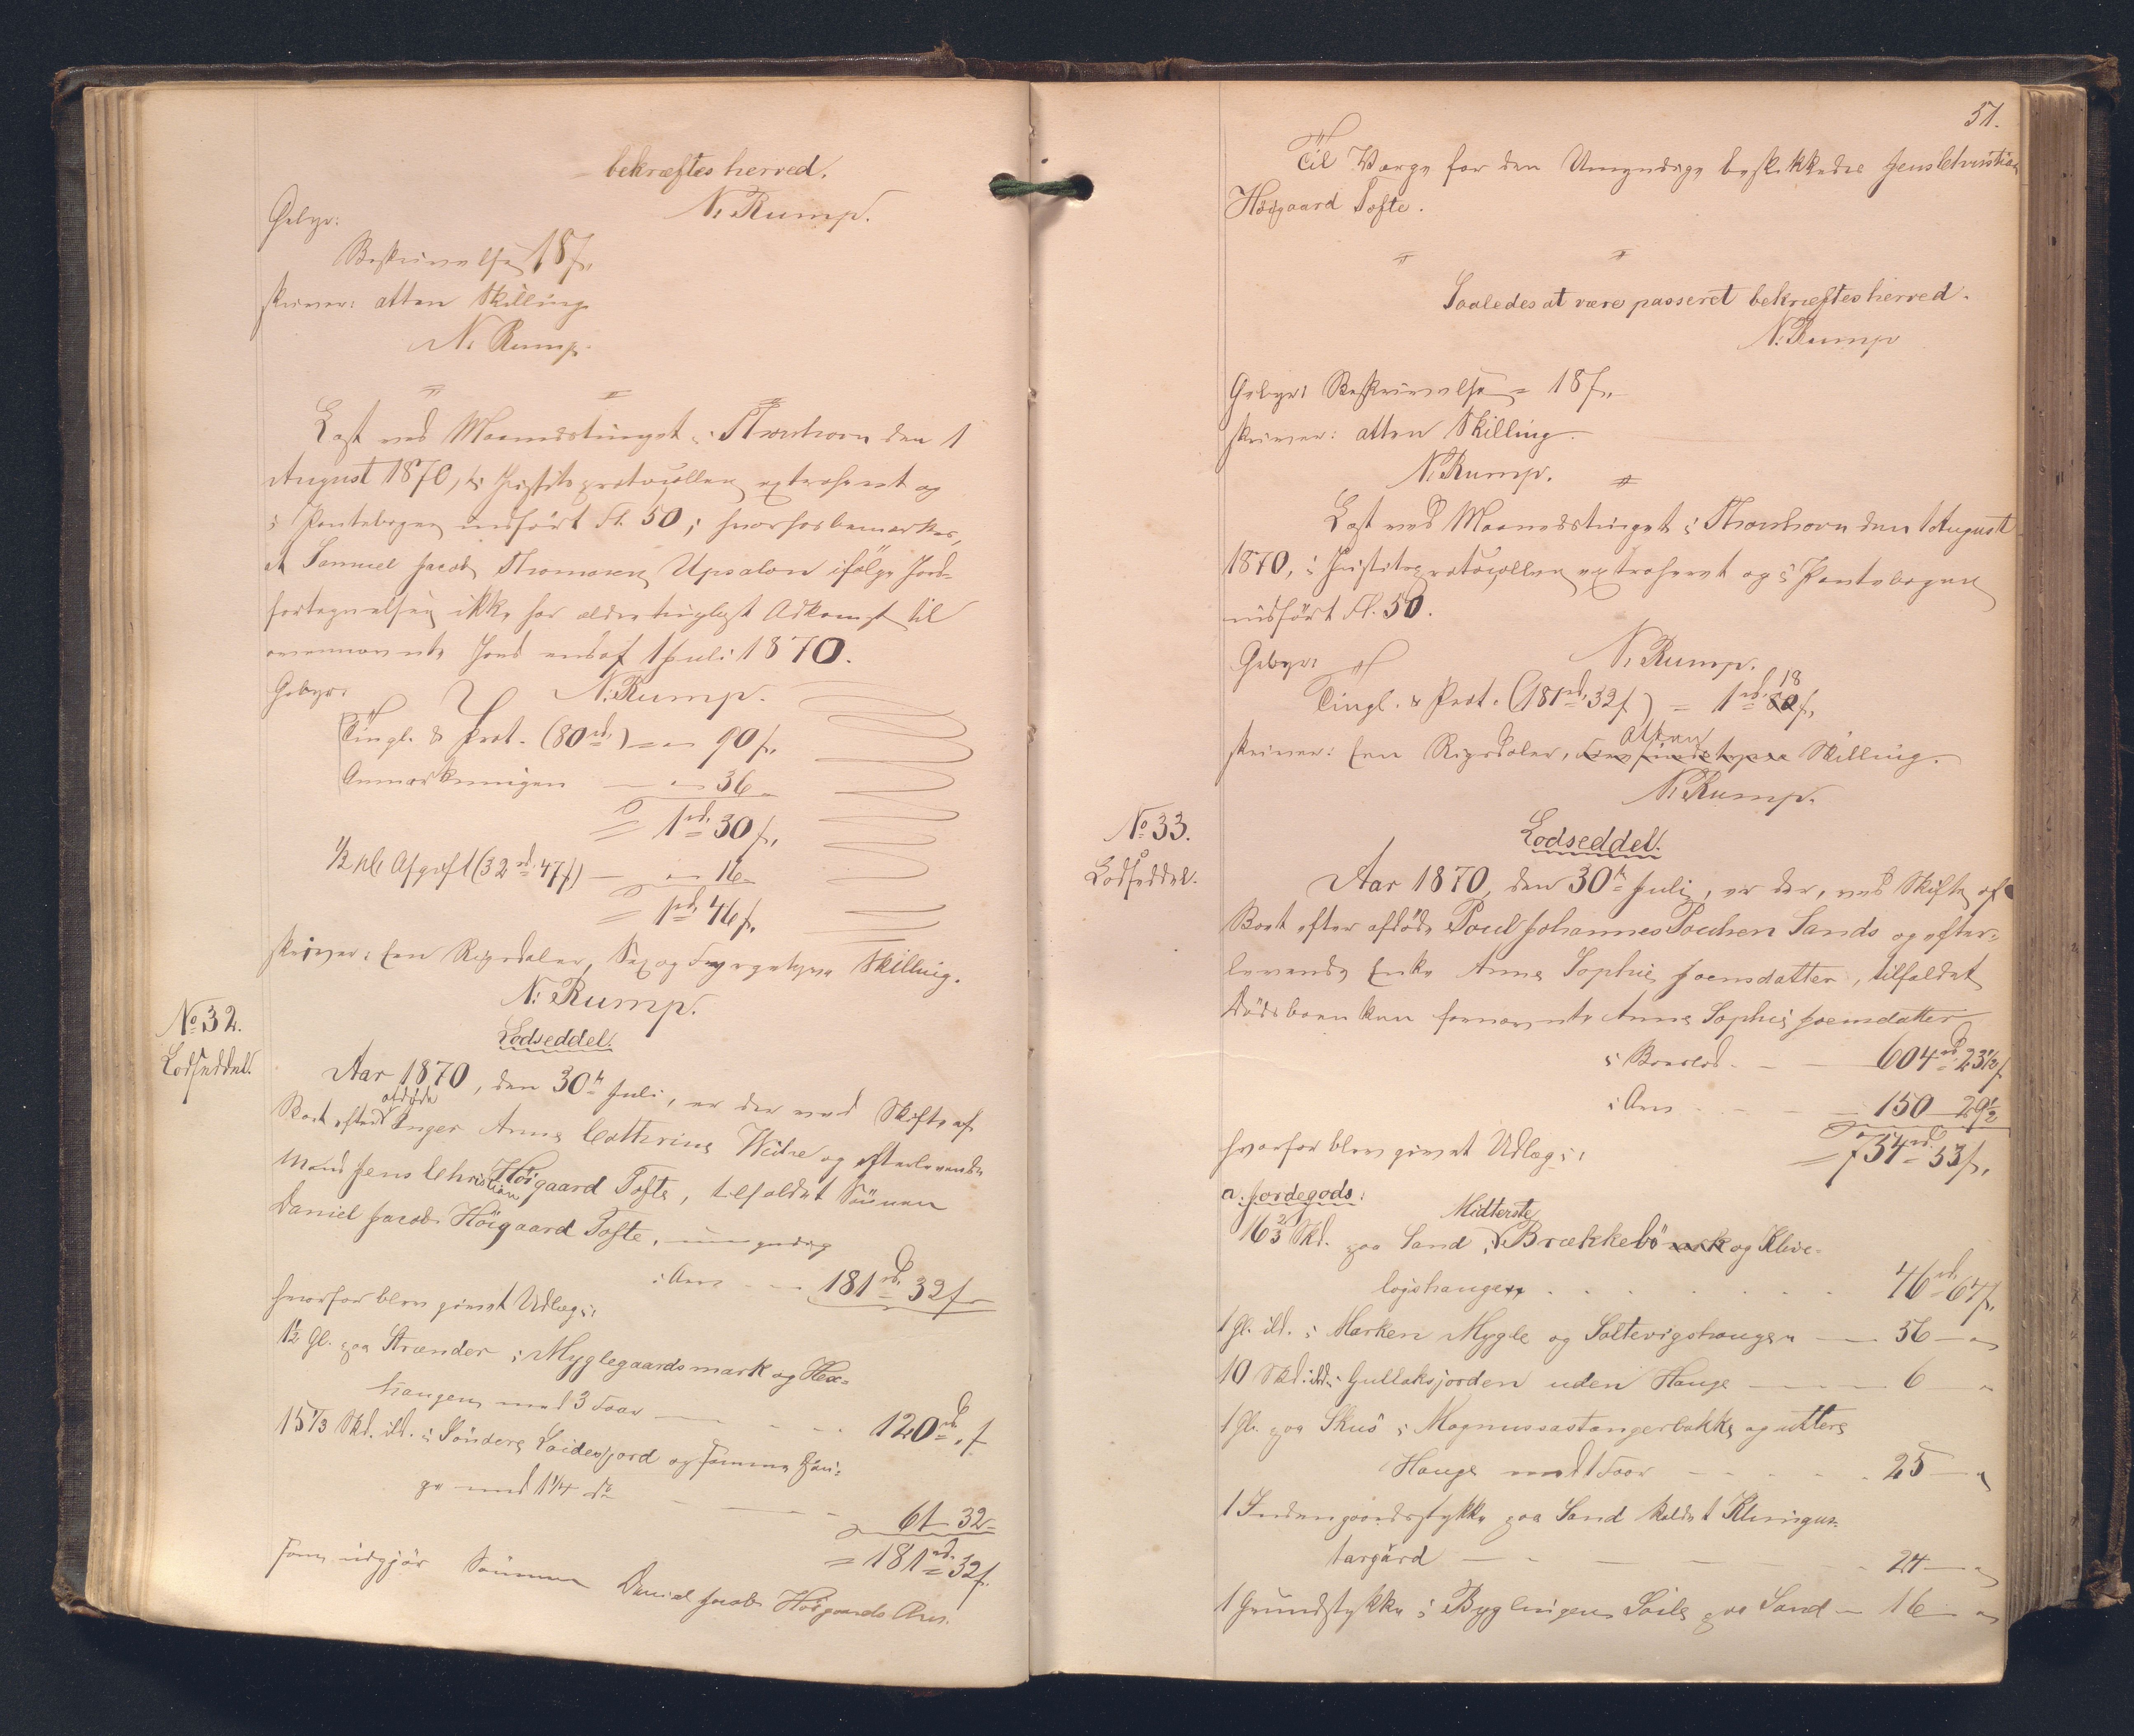 bekræftes herved.
N. Rump.
Gebyr:
Beskrivelse 18ſ.
skriver: atten Skilling
N. Rump.
Læst ved Maanedstinget i Thorshavn den 1
August 1870, i Justitsprotocollen extraheret og
i Pantebogen indført Fl. 50; hvorhos bemærkes,
at Samuel Jacob Thomasen Upsalon ifølge Jord-
fortegnelsen ikke har ældre tinglyst Adkomst til
ommeldte Jord end af 1 Juli 1870.
Gebyr:
N. Rump.
Tingl. & Prot. (80rd) = " 90ſ.
Anmærkningen — " 36 "
= 1rd 30ſ.
½ pCt Afgift (32rd 47ſ) — " 16
= 1rd 46ſ.
skriver: Een Rigsdaler, Sex og Fyrgetyve Skilling.
N. Rump.
No 32.
Lodseddel.
Lodseddel.
Aar 1870, den 30te Juli, er der ved Skifte af
Boet efter afdøde Inger Anna Cathrine Weihe og efterlevende
Mand Jens Christian Høigaard Tofte, tilfaldet Sønnen
Daniel Jacob Høigaard Tofte, umyndig
i Arv — 181rd 32ſ
hvorfor blev givet Udlæg i:
1½ Gl. paa Strænder i Myglegaardsmark og Hea-
haugen med 3 Faar — 120rd " ſ
15⅓ Skd. ibd. i Søndere Leidesjord og samme Hau-
ge med 1¼ do — 61 — 32 "
= 181rd 32ſ.
som udgjør Sønnen Daniel Jacob Høigaards Arv.
51.
Til Værge for den Umyndige beskikkedes Jens Christian
Høigaard Tofte.
Saaledes at være passeret bekræftes herved.
N. Rump
Gebyr: Beskrivelse = 18ſ.
skriver: atten Skilling.
N. Rump.
Læst ved Maanedstinget i Thorshavn den 1 August
1870, i Justitsprotocollen extraheret og i Pantebogen
indført Fl. 50.
Gebyr:
N. Rump.
Tingl. & Prot. (181rd 32ſ) = 1rd 18ſ.
skriver: Een Rigsdaler, Atten Skilling.
N. Rump.
No 33.
Lodseddel.
Lodseddel.
Aar 1870, den 30te Juli, er der, ved Skifte af
Boet efter afdøde Poul Johannes Poulsen Sands og efter-
levende Enke Anna Sophie Joensdatter, tilfaldet
Dødsboen fornævnte Anna Sophie Joensdatter
i Boeslod — 604rd 23½ſ
i Arv — 150 — 29½
hvorfor blev givet Udlæg i: = 754rd 53ſ.
a. Jordegods:
16⅔ Skd. paa Sand, i Midterste Brækkebø og Klive-
lojshaugen . . . 46rd 64ſ.
1 Gl. ibd. i Marken Mygle og Saltevigshaugen — 56 — "
10 Skd. ibd. i Gullaksjorden uden Hauge — 6 "
1 Gl. paa Skuø i Magnussastangerbakke og uttere
Hauge med 1 Faar — 25 — "
1 Indengaardsstykke paa Sand kaldet Klingus-
targård — 24 — "
1 Grundstykke i Byglingen Seile paa Sand — 16 — "